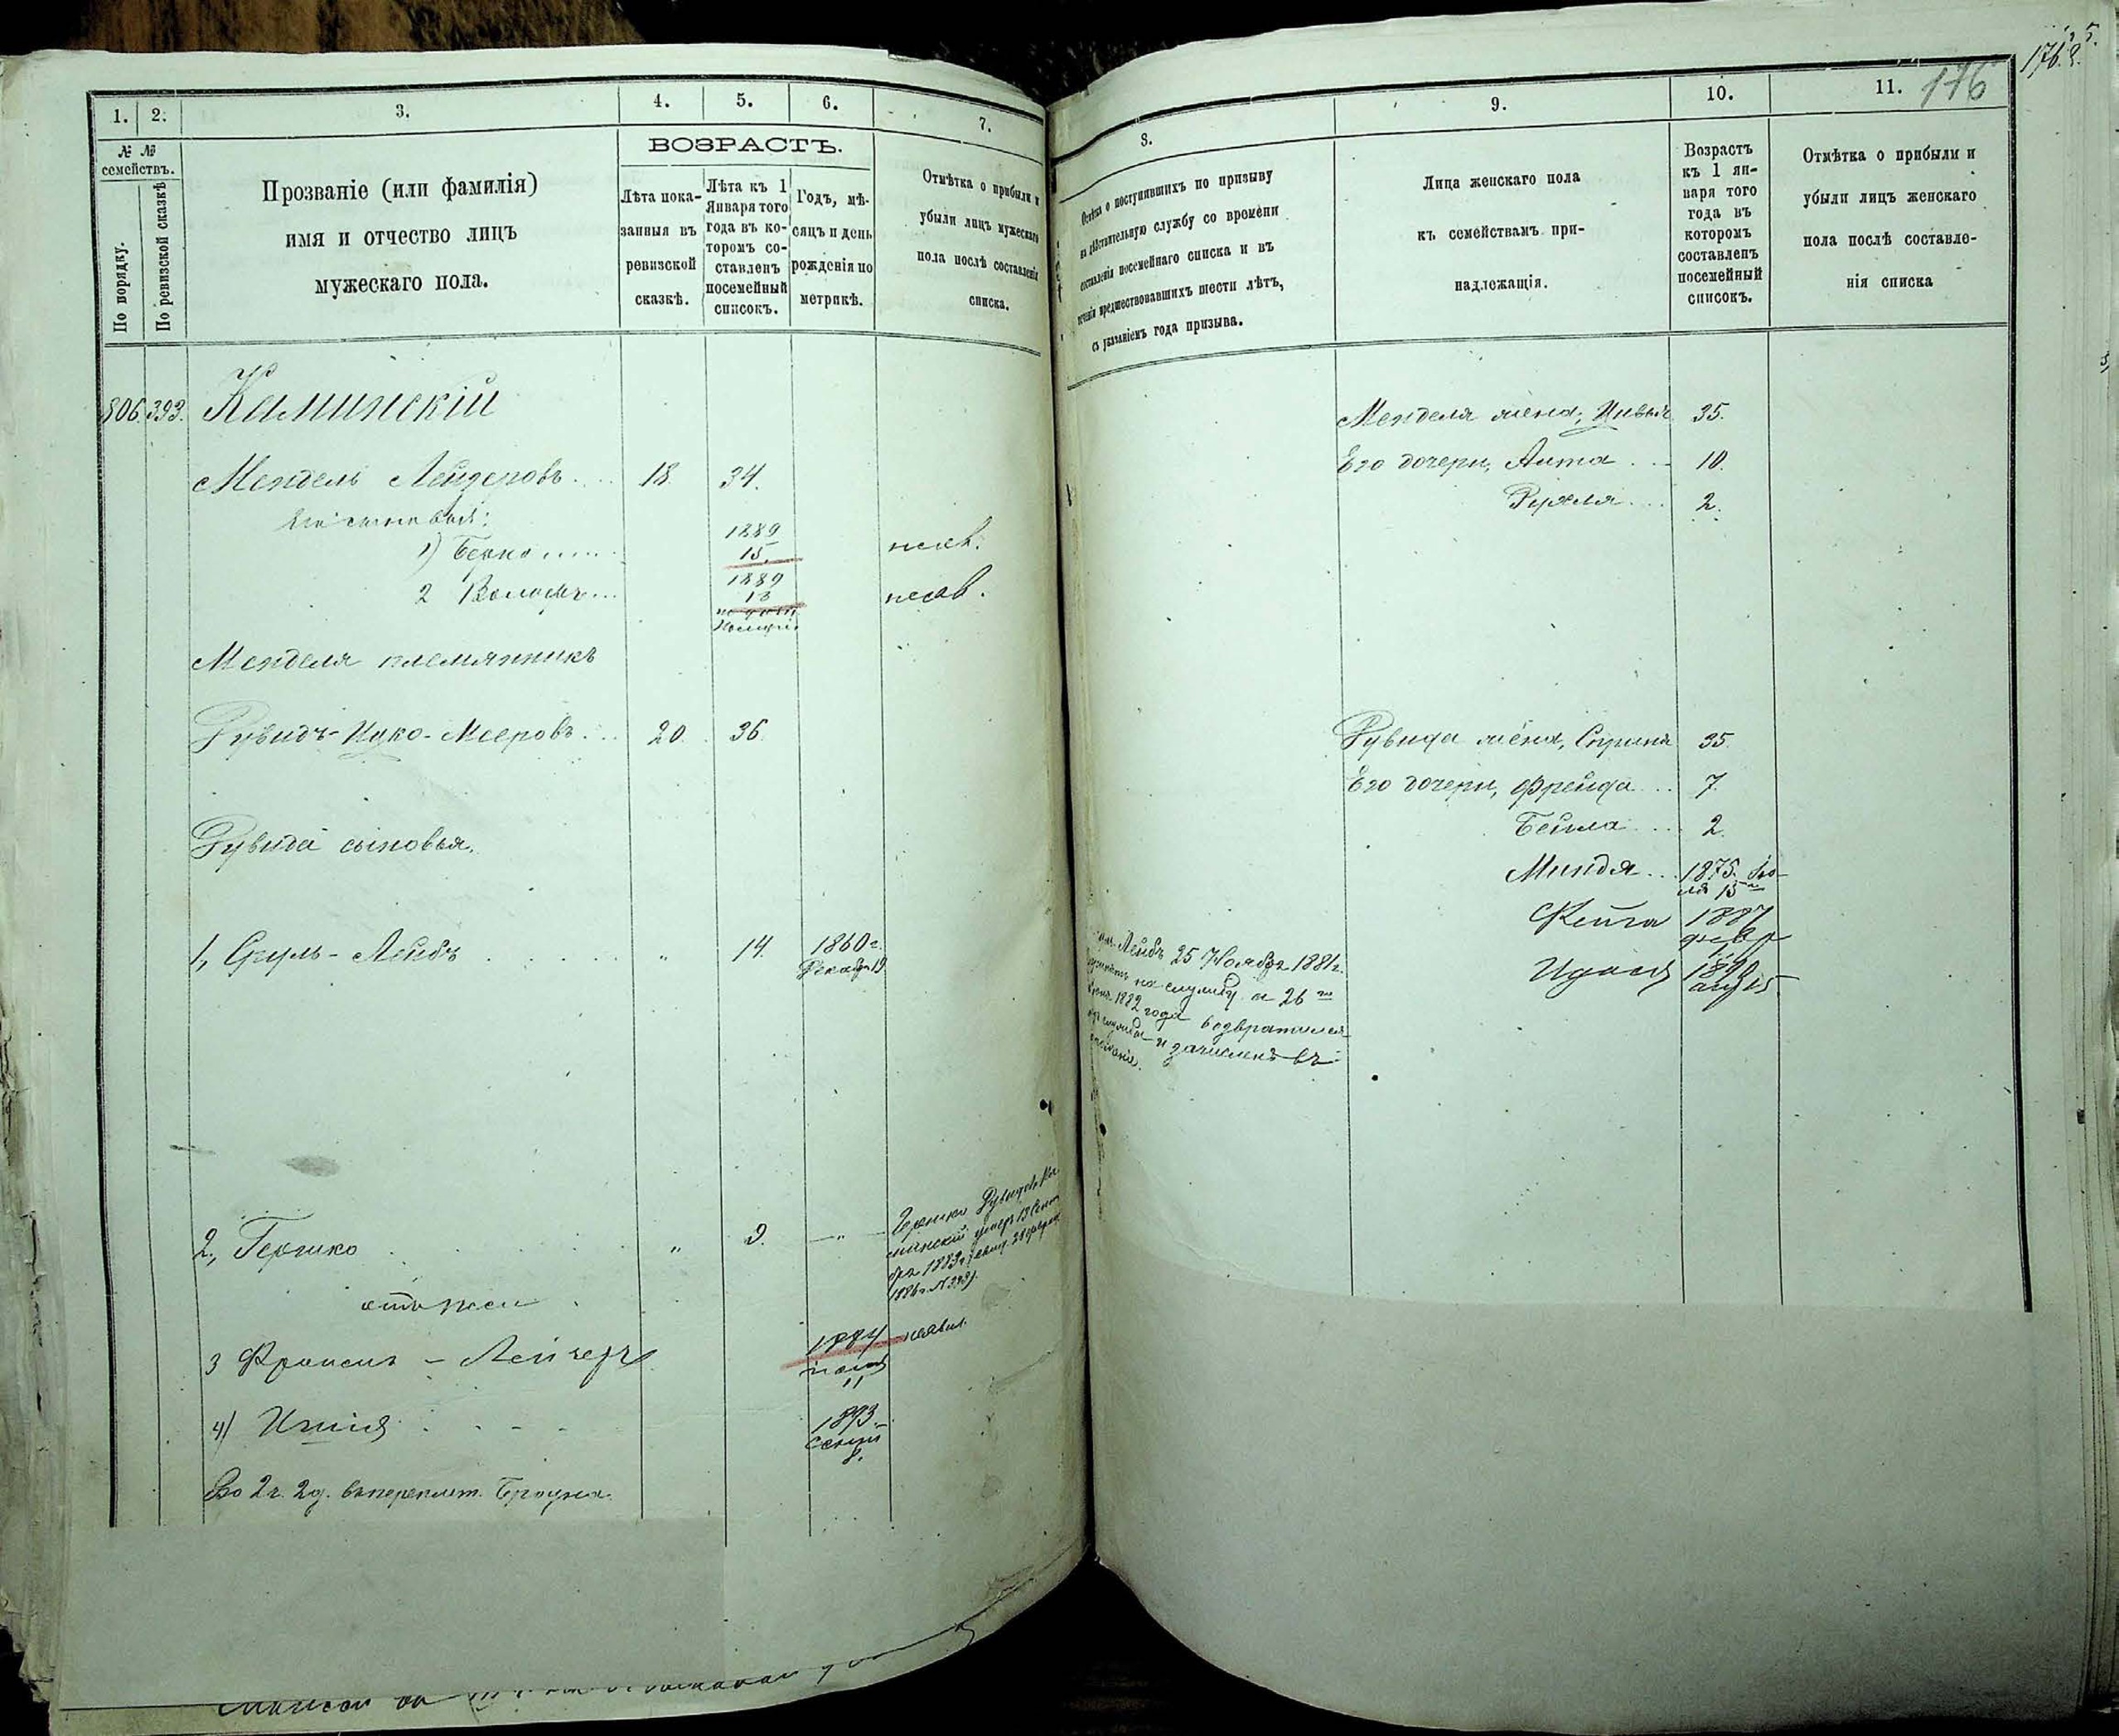 1.
2.
3.
4.
5.
6.
7.
№ №
семействъ.
По порядку.
По ревизской сказкѣ
Прозваніе (или фамилія)
имя и отчество лицъ
мужескаго пола.
ВОЗРАСТЪ.
Лѣта пока-
занныя въ
ревизской
сказкѣ.
Лѣта къ 1
Января того
года въ ко-
торомъ со-
ставленъ
посемейный
списокъ.
Годъ, мѣ-
сяцъ и день
рожденія по
метрикѣ.
Отмѣтка о прибыли и
убыли лицъ мужескаго
пола послѣ составленія
списка.
806. 393. Каминскій
Мендель Лейзеровъ 18. 34.
Его сыновья:
1) Берко 1889
15.
неяв.
2 1889
13
неяв.
Менделя племянникъ
Рувидъ-Ицко-Мееровъ 20. 36
Рувида сыновья.
1, Сруль-Лейбъ " 14. 1860 г.
Декабря 19
2, Гершко " 9. — " —
Гершко Рувидовъ Ка-
минскій умеръ 13 Сент
бря 1883 г.
1886 г. №
3 - Лейзеръ 1884 неявил.
11
4) 1893
Сент
8.
Во 2 ч. 2 д. въ переплет.
176
8.
9.
10.
11. 176
Отмѣтка о поступившихъ по призыву
на дѣйствительную службу со времени
составленія посемейнаго списка и въ
теченіи предшествовавшихъ шести лѣтъ,
съ указаніемъ года призыва.
Лица женскаго пола
къ семействамъ при-
надлежащія.
Возрастъ
къ 1 ян-
варя того
года въ
которомъ
составленъ
посемейный
списокъ.
Отмѣтка о прибыли и
убыли лицъ женскаго
пола послѣ составле-
нія списка
Менделя жена, Цивья 35.
Его дочери, Алта 10.
2.
Рувида жена, Сприня 35.
Его дочери, Фрейда 7.
Бейла 2.
Миндля 1875. Ію-
ля 15
Фейга 1887
февр
1890
авг 15
Лейбъ 25 Ноября 1881 г.
принятъ на службу а 26 го
1882 года возвратился
службы и зачисленъ въ